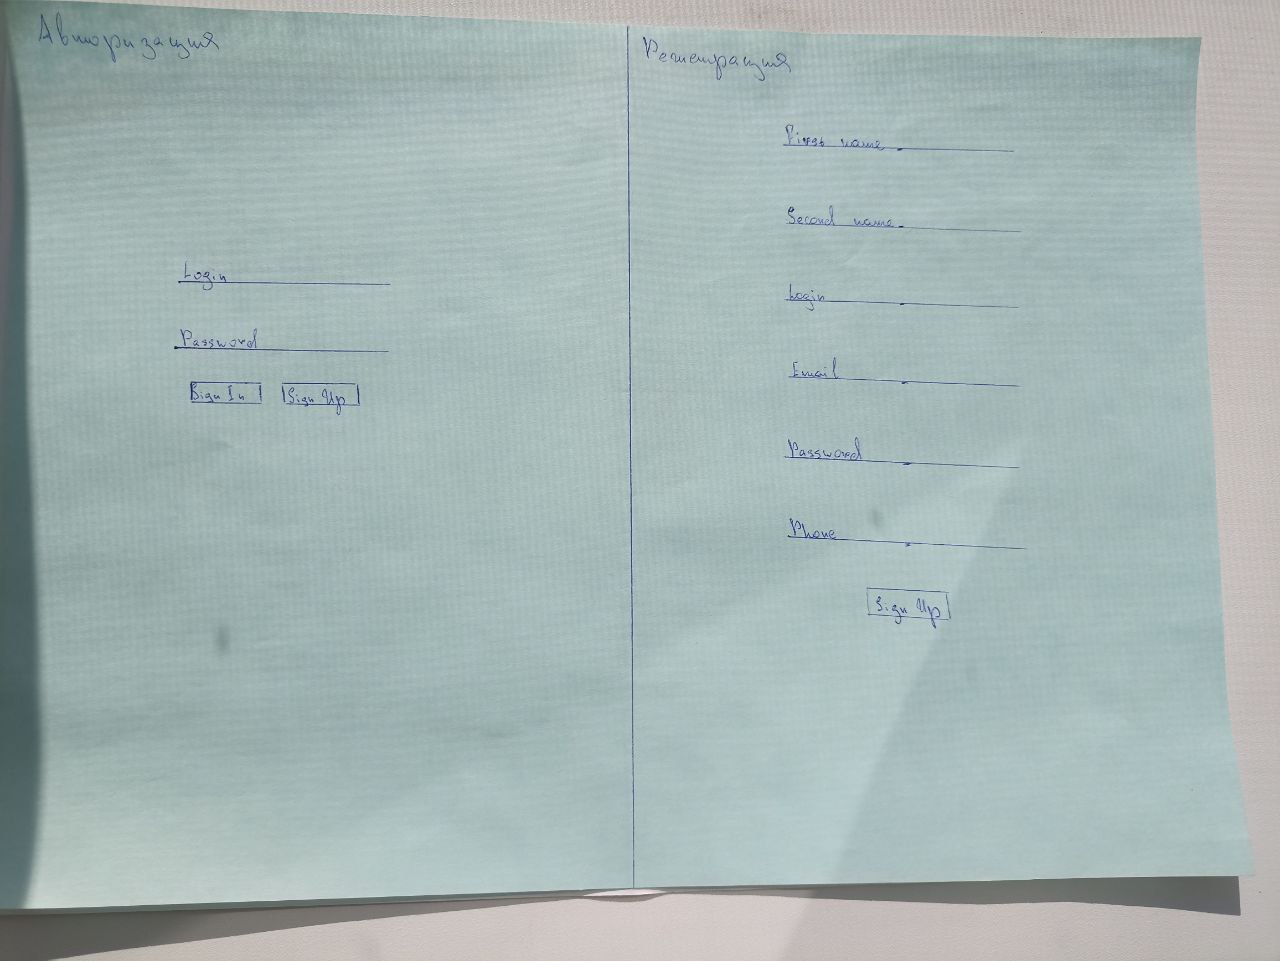 Авторизация
Login
Password
Sign In
Sign Up
Регистрация
First name
Second name
Login
Email
Password
Phone
Sign Up